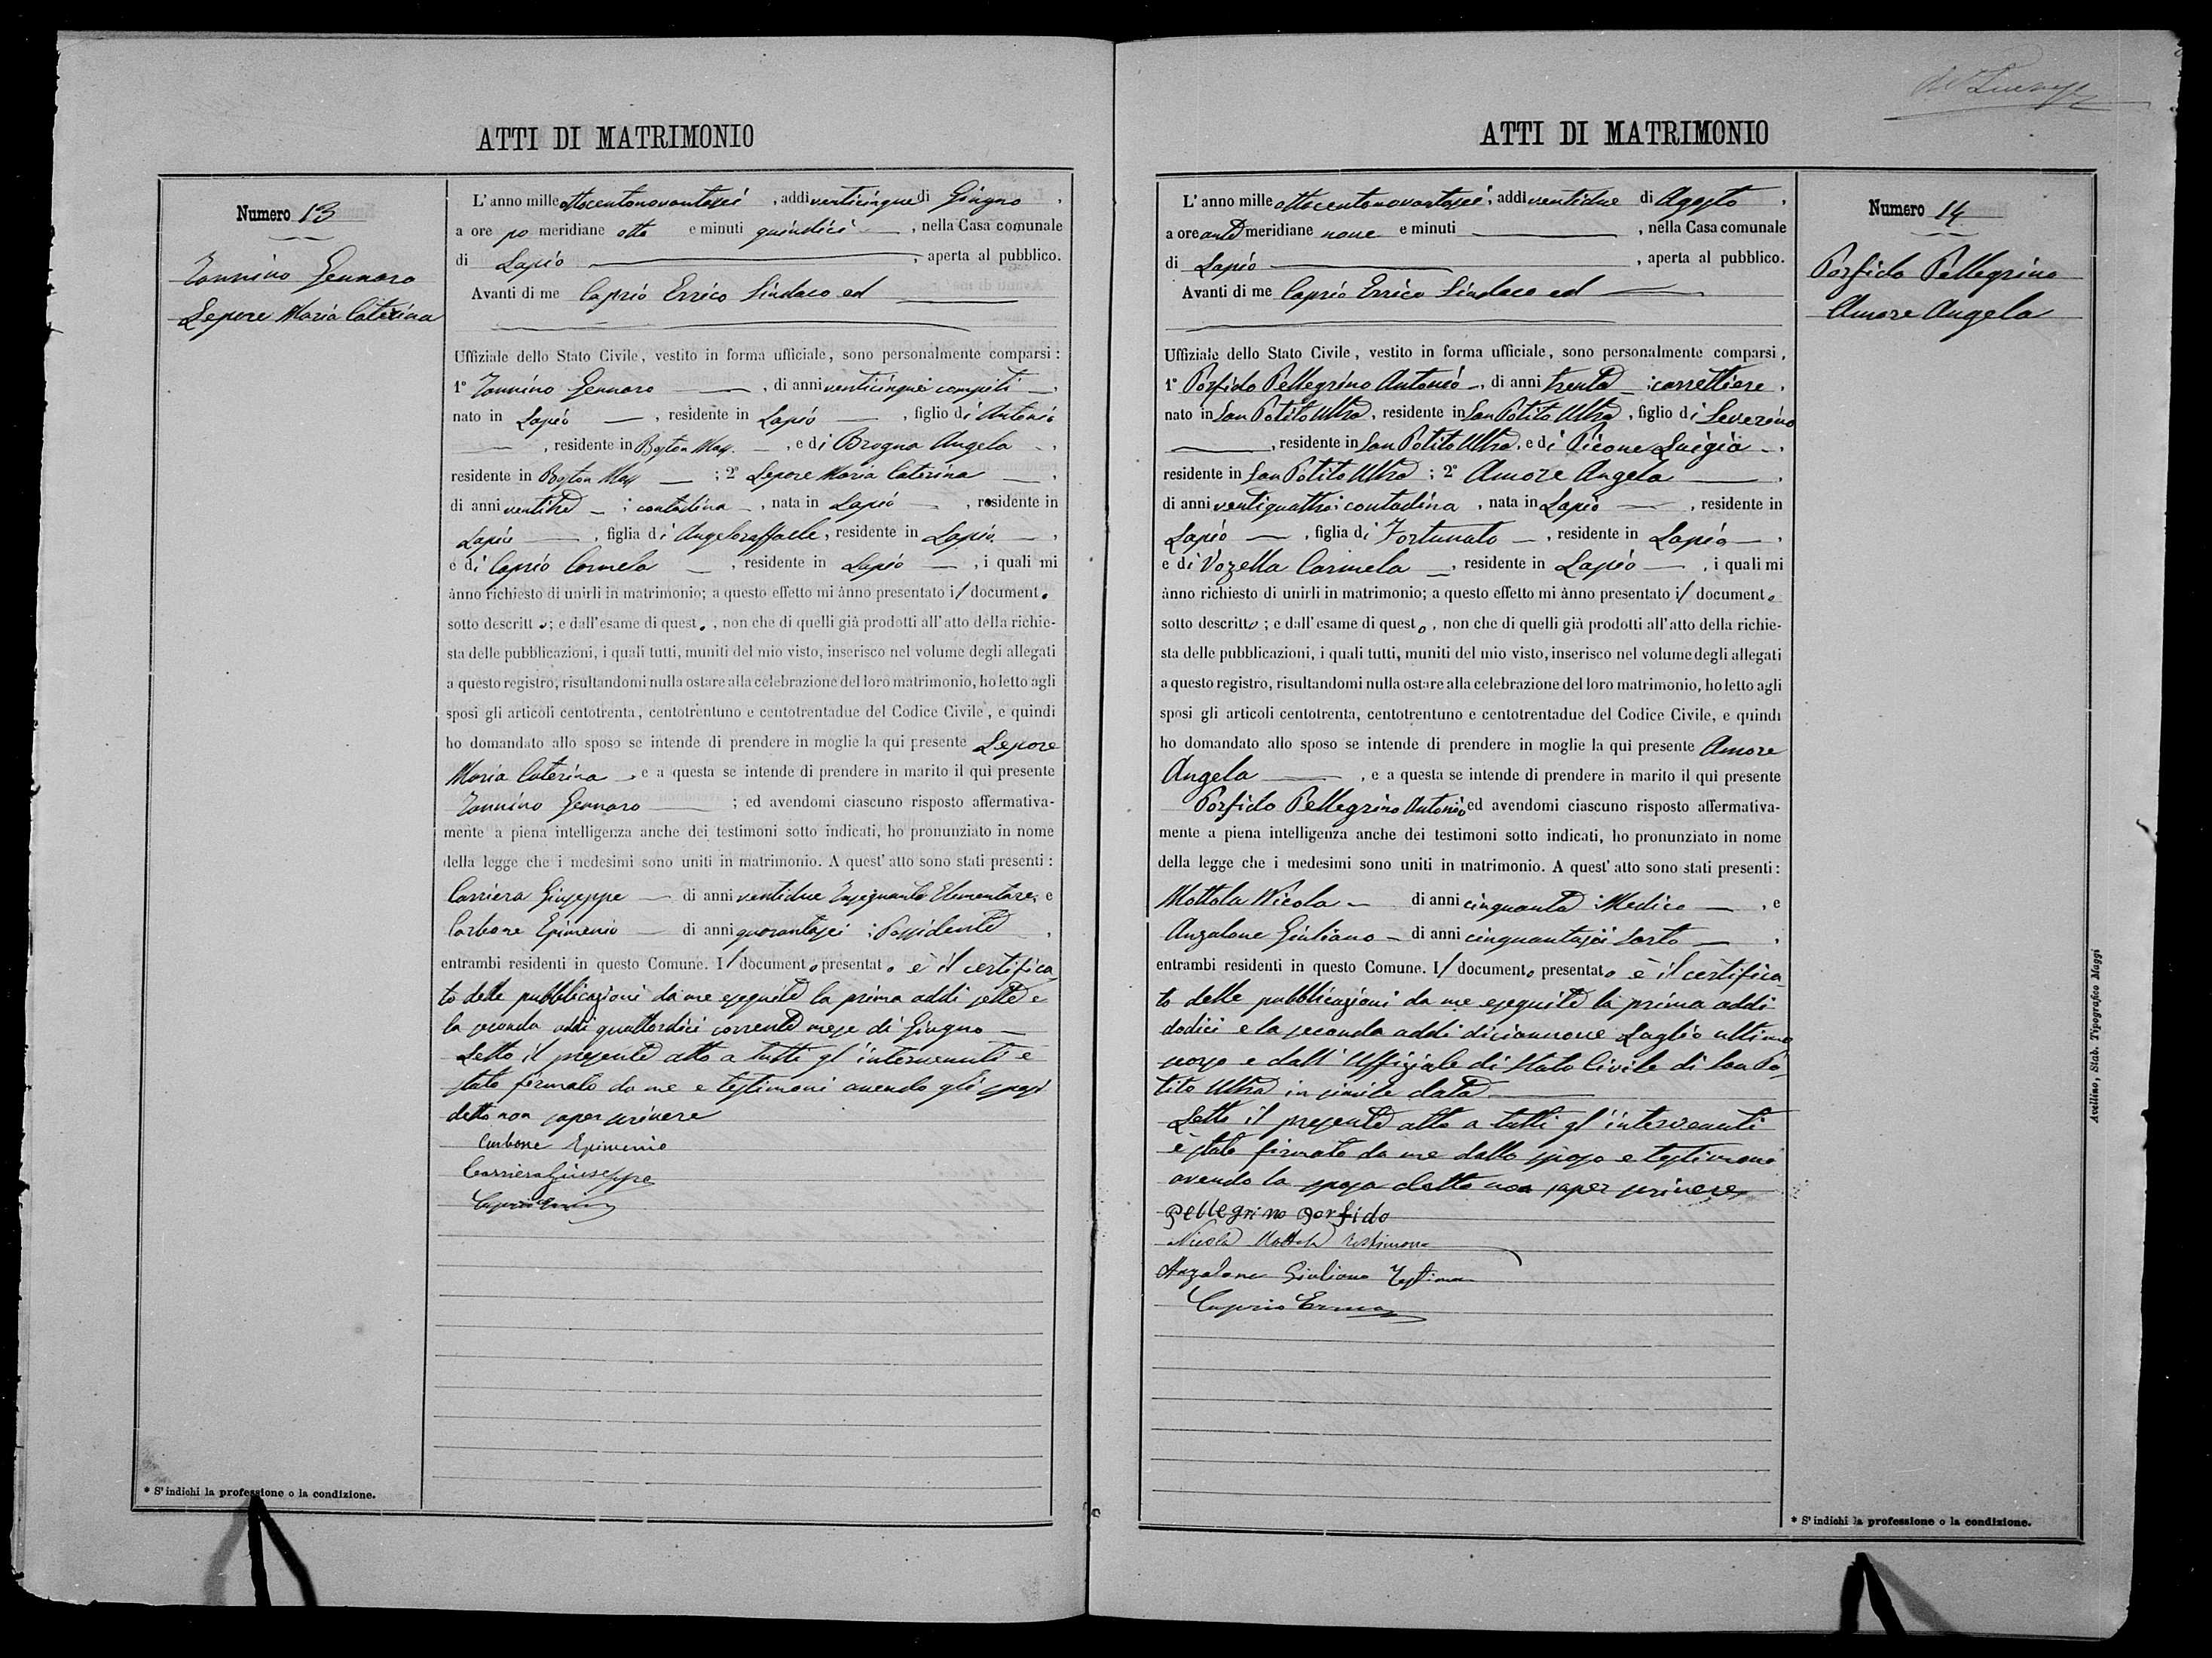 ATTI DI MATRIMONIO
Numero 13
Iannino Gennaro
Lepore Maria Caterina
L'anno mille ottocentonovantasei, addi venticinque di Giugno,
a ore po meridiane otto e minuti quindici, nella Casa comunale
di Lapio, aperta al pubblico.
Avanti di me Caprio Errico Sindaco ed
Uffiziale dello Stato Civile, vestito in forma ufficiale, sono personalmente comparsi:
1° Iannino Gennaro, di anni venticinque compiti,
nato in Lapio, residente in Lapio, figlio di Antonio
, residente in Boston Mass., e di Brogna Angela,
residente in Boston Mass; 2° Lepore Maria Caterina,
di anni ventitre; contadina, nata in Lapio, residente in
Lapio, figlia di Angeloraffaele, residente in Lapio,
e di Caprio Carmela, residente in Lapio, i quali mi
ànno richiesto di unirli in matrimonio; a questo effetto mi ànno presentato il documento
sotto descritto; e dall'esame di questo, non che di quelli già prodotti all'atto della richie-
sta delle pubblicazioni, i quali tutti, muniti del mio visto, inserisco nel volume degli allegati
a questo registro, risultandomi nulla ostare alla celebrazione del loro matrimonio, ho letto agli
sposi gli articoli centotrenta, centotrentuno e centotrentadue del Codice Civile, e quindi
ho domandato allo sposo se intende di prendere in moglie la qui presente Lepore
Maria Caterina, e a questa se intende di prendere in marito il qui presente
Iannino Gennaro; ed avendomi ciascuno risposto affermativa-
mente a piena intelligenza anche dei testimoni sotto indicati, ho pronunziato in nome
della legge che i medesimi sono uniti in matrimonio. A quest'atto sono stati presenti:
Carriera Giuseppe di anni ventidue Insegnante Elementare, e
Carbone Epimenio di anni quarantasei; Possidente,
entrambi residenti in questo Comune. Il documento presentato è il certifica
to delle pubblicazioni da me eseguite la prima addi sette e
la seconda addi quattordici corrente mese di Giugno
Letto il presente atto a tutti gl'intervenuti è
stato firmato da me e testimoni avendo gli sposi
detto non saper scrivere
Carbone Epimenio
Carriera Giuseppe
Caprio Errico
* S'indichi la professione o la condizione.
ATTI DI MATRIMONIO
Numero 14
Porfido Pellegrino
Amore Angela
L'anno mille ottocentonovantasei, addi ventidue di Agosto,
a ore ante meridiane nove e minuti, nella Casa comunale
di Lapio, aperta al pubblico.
Avanti di me Caprio Errico Sindaco ed
Uffiziale dello Stato Civile, vestito in forma ufficiale, sono personalmente comparsi,
1° Porfido Pellegrino Antonio, di anni trenta; carrettiere,
nato in San Potito Ultra, residente in San Potito Ultra, figlio di Severino
, residente in San Potito Ultra, e di Picone Luigia,
residente in San Potito Ultra; 2° Amore Angela,
di anni ventiquattro; contadina, nata in Lapio, residente in
Lapio, figlia di Fortunato, residente in Lapio,
e di Vozella Carmela, residente in Lapio, i quali mi
ànno richiesto di unirli in matrimonio; a questo effetto mi ànno presentato il documento
sotto descritto; e dall'esame di questo, non che di quelli già prodotti all'atto della richie-
sta delle pubblicazioni, i quali tutti, muniti del mio visto, inserisco nel volume degli allegati
a questo registro, risultandomi nulla ostare alla celebrazione del loro matrimonio, ho letto agli
sposi gli articoli centotrenta, centotrentuno e centotrentadue del Codice Civile, e quindi
ho domandato allo sposo se intende di prendere in moglie la qui presente Amore
Angela, e a questa se intende di prendere in marito il qui presente
Porfido Pellegrino Antonio ed avendomi ciascuno risposto affermativa-
mente a piena intelligenza anche dei testimoni sotto indicati, ho pronunziato in nome
della legge che i medesimi sono uniti in matrimonio. A quest'atto sono stati presenti:
Mottola Nicola di anni cinquanta; Medico, e
Anzalone Giuliano di anni cinquantasei Sarto,
entrambi residenti in questo Comune. Il documento presentato è il certifica
to delle pubblicazioni da me eseguite la prima addi
dodici e la seconda addi diciannove Luglio ultimo
scorso e dall'Uffiziale di Stato Civile di San Po
tito Ultra in simile data
Letto il presente atto a tutti gl'intervenuti
è stato firmato da me dallo sposo e testimoni
avendo la sposa detto non saper scrivere
pellegrino porfido
Nicola Mottola testimone
Anzalone Giuliano Testimone
Caprio Errico
* S'indichi la professione o la condizione.
Avellino, Stab. Tipografico Maggi